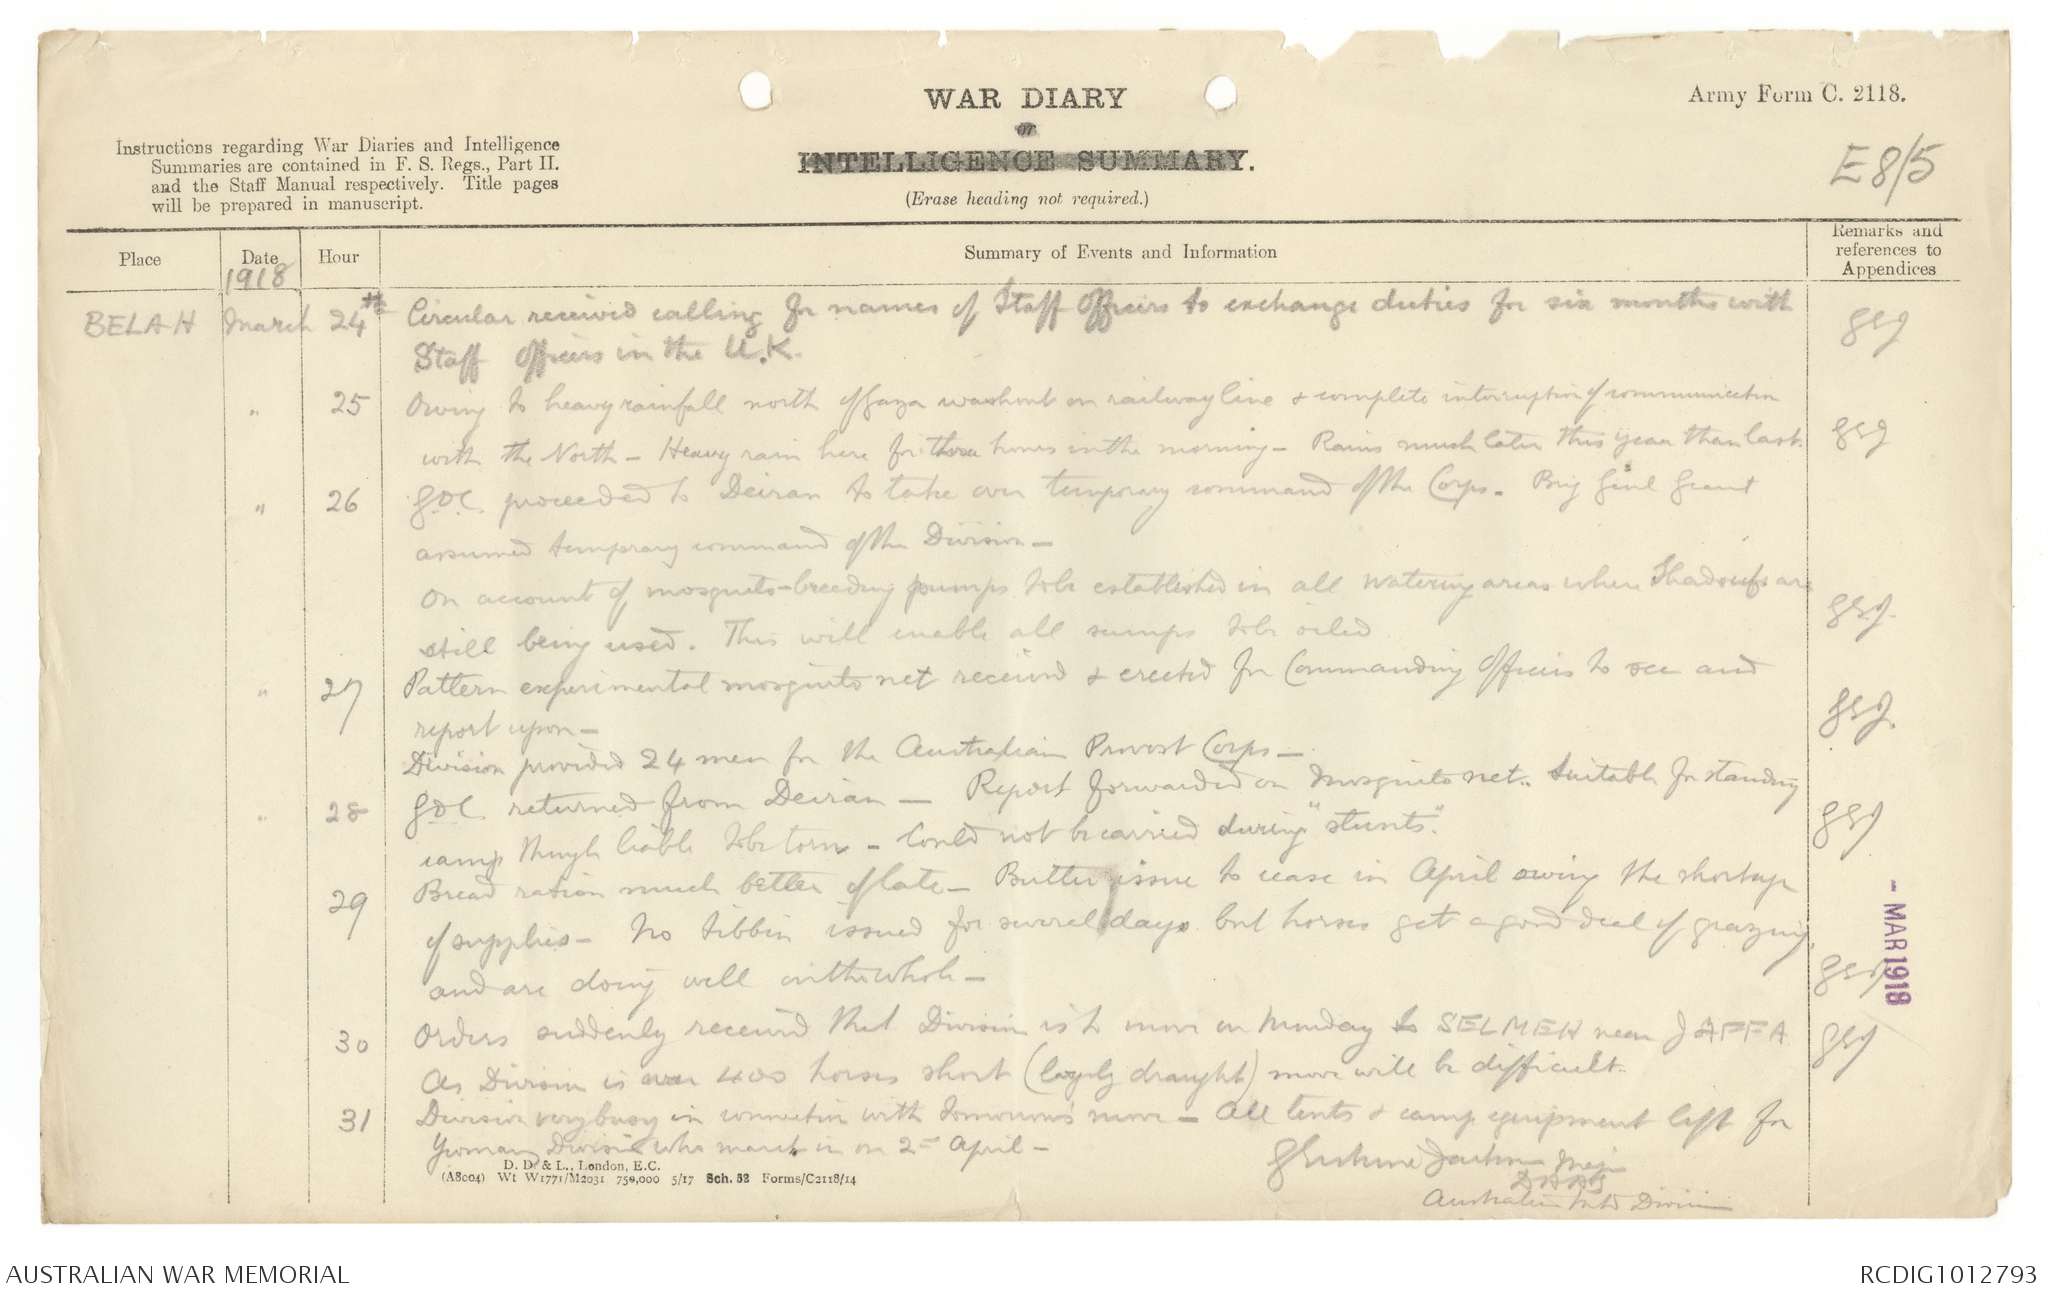 WAR DIARY
or
INTELLIGENCE SUMMARY.
(Erase heading not required.)
Army Form C. 2118.
E8/5
Instructions regarding War Diaries and Intelligence
Summaries are contained in F. S. Regs., Part II.
and the Staff Manual respectively. Title pages
will be prepared in manuscript.
Place
Date
Hour
Summary of Events and Information
Remarks and
references to
Appendices
1918
BELAH March 24th Circular received calling for names of Staff Officers to exchange duties for six months with
Staff Officers in the U.K. GEJ
" 25 Owing to heavy rainfall north of Gaza washout on railway line & complete interruption of communication
with the North - Heavy rain here for three hours in the morning - Rains much later this year than last. GEJ
" 26 G.O.C. proceeded to Deiran to take over temporary command of the Corps. Brig Genl Grant
assumed temporary command of the Division -
On account of mosquito-breeding pumps to be established in all watering areas where Shadoufs are
still being used. This will enable all sumps to be oiled GEJ.
" 27 Pattern experimental mosquito net received & erected for Commanding Officers to see and
report upon - GEJ.
Division provided 24 men for the Australian Provost Corps -
" 28 GOC returned from Deiran - Report forwarded on Mosquito net. Suitable for standing
camp though liable to be torn - Could not be carried during "stunts". GEJ
29 Bread ration much better of late - Butter issue to cease in April owing the shortage
of supplies - No tibbin issued for several days but horses get a good deal of grazing
and are doing well on the whole - GEJ
30 Orders suddenly received that Division is to move on Monday to SELMEH near JAFFA GEJ
As Division is over 400 horses short (largely draught) move will be difficult.
31 Division very busy in connection with tomorrow's move - All tents & camp equipment left for
Yeomanry Division who march in on 2nd April -
G Erskine Jackson Maj
DAAG
Australian Mtd Division
- MAR 1918
D. D. & L., London, E.C.
(A8004) Wt W1771/M2031 750,000 5/17 Sch. 52 Forms/C2118/14
AUSTRALIAN WAR MEMORIAL
RCDIG1012793